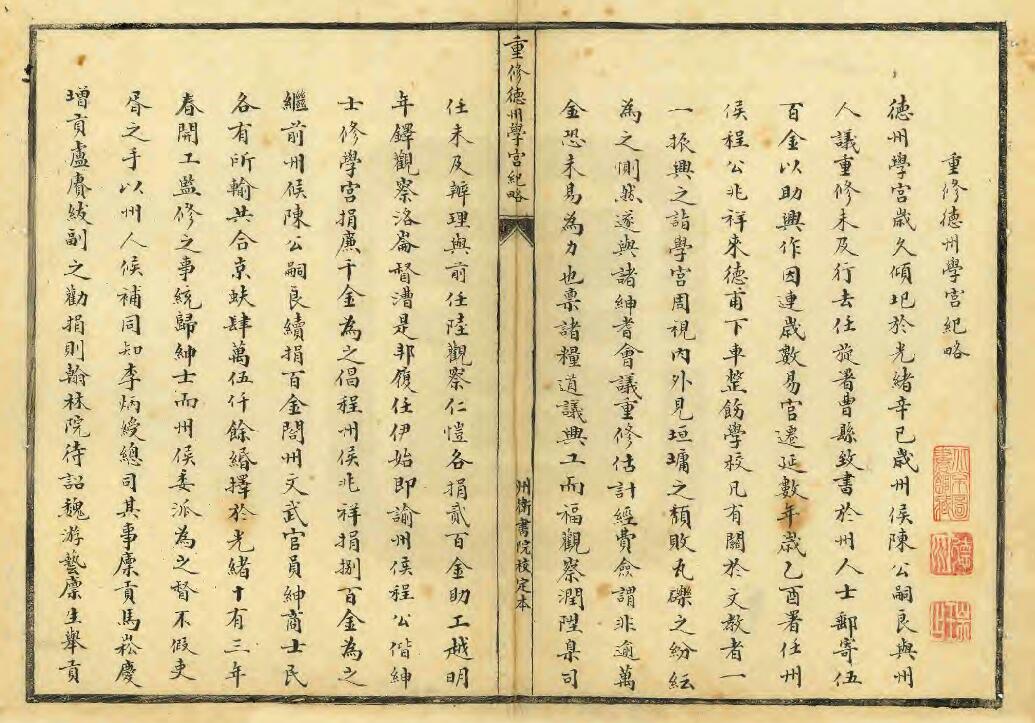 重修德州學宮紀略
德州學宮歲久傾圯於光緒辛巳歲州侯陳公嗣良與州
人議重修未及行去任旋署曹縣致書於州人士郵寄伍
百金以助興作因連歲數易官遷延數年歲乙酉署任州
侯程公兆祥來德甫下車整飭學校凡有關於文教者一
一振興之詣學宮周視內外見垣墉之頹敗瓦礫之紛紜
為之惻然遂與諸紳耆會議重修估計經費僉謂非逾萬
金恐未易為力也稟諸糧道議興工而福觀察潤陞臬司
重修德州學宮紀略
州衛書院校定本
任未及辦理與前任陸觀察仁愷各捐貳百金助工越明
年鐸觀察洛崙督漕是邦履任伊始即諭州侯程公偕紳
士修學宮捐廉千金為之倡程州侯兆祥捐捌百金為之
繼前州侯陳公嗣良續捐百金閤州文武官員紳商士民
各有所輸共合京蚨肆萬伍仟餘緡擇於光緒十有三年
春開工監修之事統歸紳士而州侯委派為之督不假吏
胥之手以州人候補同知李炳綬總司其事廩貢馬崧慶
增貢盧賡紱副之勸捐則翰林院待詔魏游藝廩生舉貢
德州